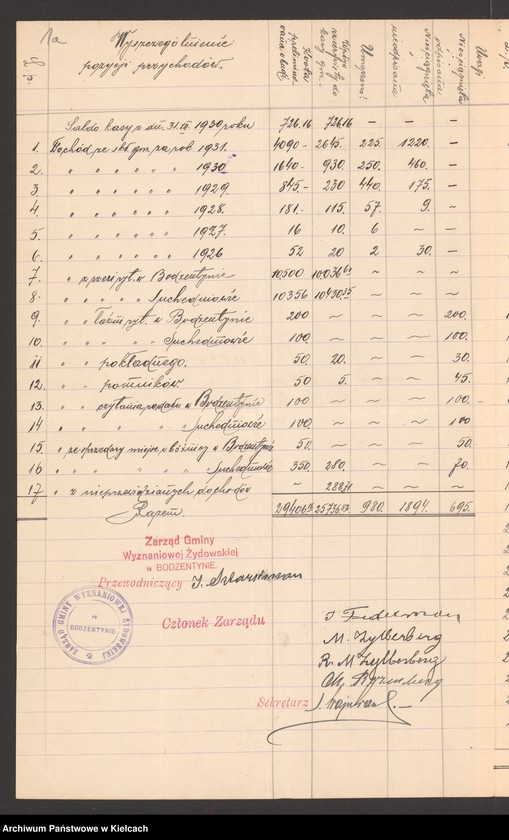 1a
L. p. Wyszczególnienie pozycji przychodów. Kwota preliminowana Wpływ rzeczywisty do kasy gm. Umorzono Nieodpisano Nieściągnięta Uwagi
Saldo kasy z dn. 31.XII. 1930 roku 726.16 726.16 — — —
1. Dochód ze skł. gm. za rok 1931. 4090 - 2645. 225. 1220. —
2. " " " " " " 1930 1640 - 930. 250. 460. —
3 " " " " " " 1929. 845 - 230 440. 175. —
4. " " " " " " 1928. 181. - 115. 57. 9. ~
5. " " " " " " 1927. 16 10. 6 ~ —
6 " " " " " " 1926 52 20 2 30. —
7. " z rzezi ryt. w Bodzentynie 10500 10036 ~ ~ ~
8. " " " " " Suchedniowie 10356 10430.35 ~ ~ ~
9. " " Łaźni ryt. w Bodzentynie 200 ~ ~ ~ 200.
10. " " " " Suchedniowie 100. ~ ~ ~ 100.
11 " " pokładnego. 50. 20. ~ ~ 30.
12. " " pomników 50 5. ~ ~ 45.
13. " " czytania rodału w Bodzentynie 100 ~ ~ ~ 100. -
14 " " " " " Suchedniowie 100. ~ ~ ~ 100
15. " ze sprzedaży miejsc w bóżnicy w Bodzentynie 50. ~ ~ ~ 50.
16 " " " " " " Suchedniowie 350. 280. ~ ~ 70.
17 " z nieprzewidzianych dochodów ~ 288.71 ~ ~ ~
Razem. 29406.16 25736.17 980. 1894. 695.
Zarząd Gminy
Wyznaniowej Żydowskiej
w BODZENTYNIE.
Przewodniczący
ZARZĄD GMINY WYZNANIOWEJ ŻYDOWSKIEJ
w
BODZENTYNIE
Członek Zarządu
J Federman
M. Zylberberg
R. M Zylberberg
Sekretarz
Archiwum Państwowe w Kielcach